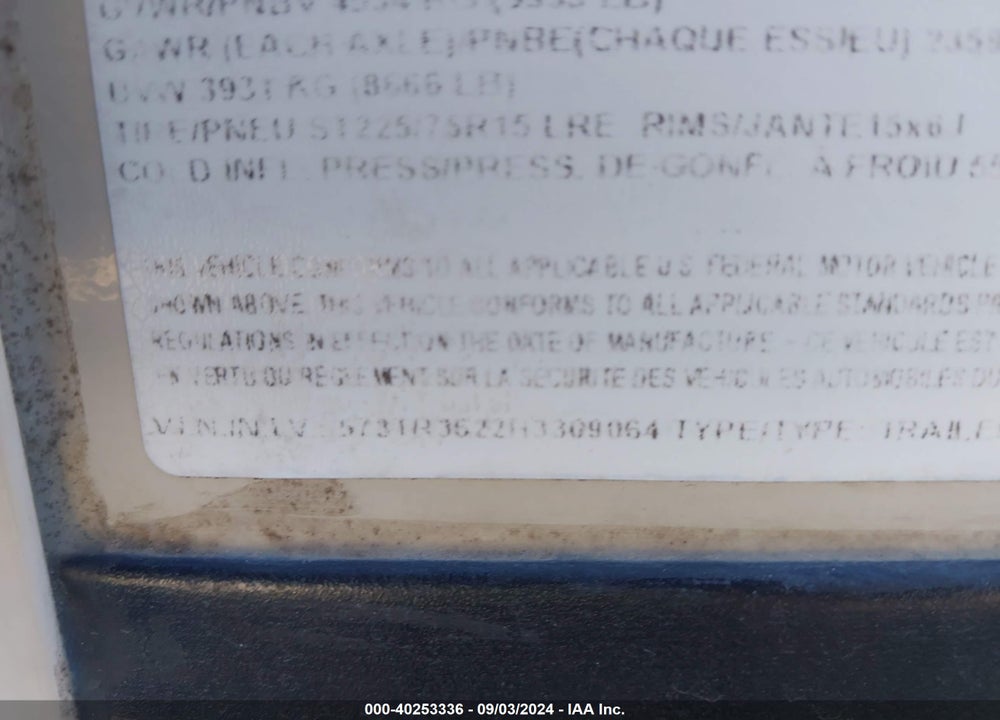 (EACH AXLE)/PNBE(CHAQUE ESSIEU)
UVW 3931 KG (8666 LB)
TIRE/PNEU ST225/75R15 LRE RIMS/JANTE 15x6J
COLD INFL. PRESS/PRESS. DE GONFL. À FROID
THIS VEHICLE CONFORMS TO ALL APPLICABLE U.S. FEDERAL MOTOR VEHICLE
SHOWN ABOVE. THIS VEHICLE CONFORMS TO ALL APPLICABLE STANDARDS
REGULATIONS IN EFFECT ON THE DATE OF MANUFACTURE - CE VEHICULE EST
EN VERTU DU REGLEMENT SUR LA SECURITE DES VEHICULES AUTOMOBILES DU
V.I.N./N.I.V. TYPE/TYPE: TRAILER
000-40253336 - 09/03/2024 - IAA Inc.